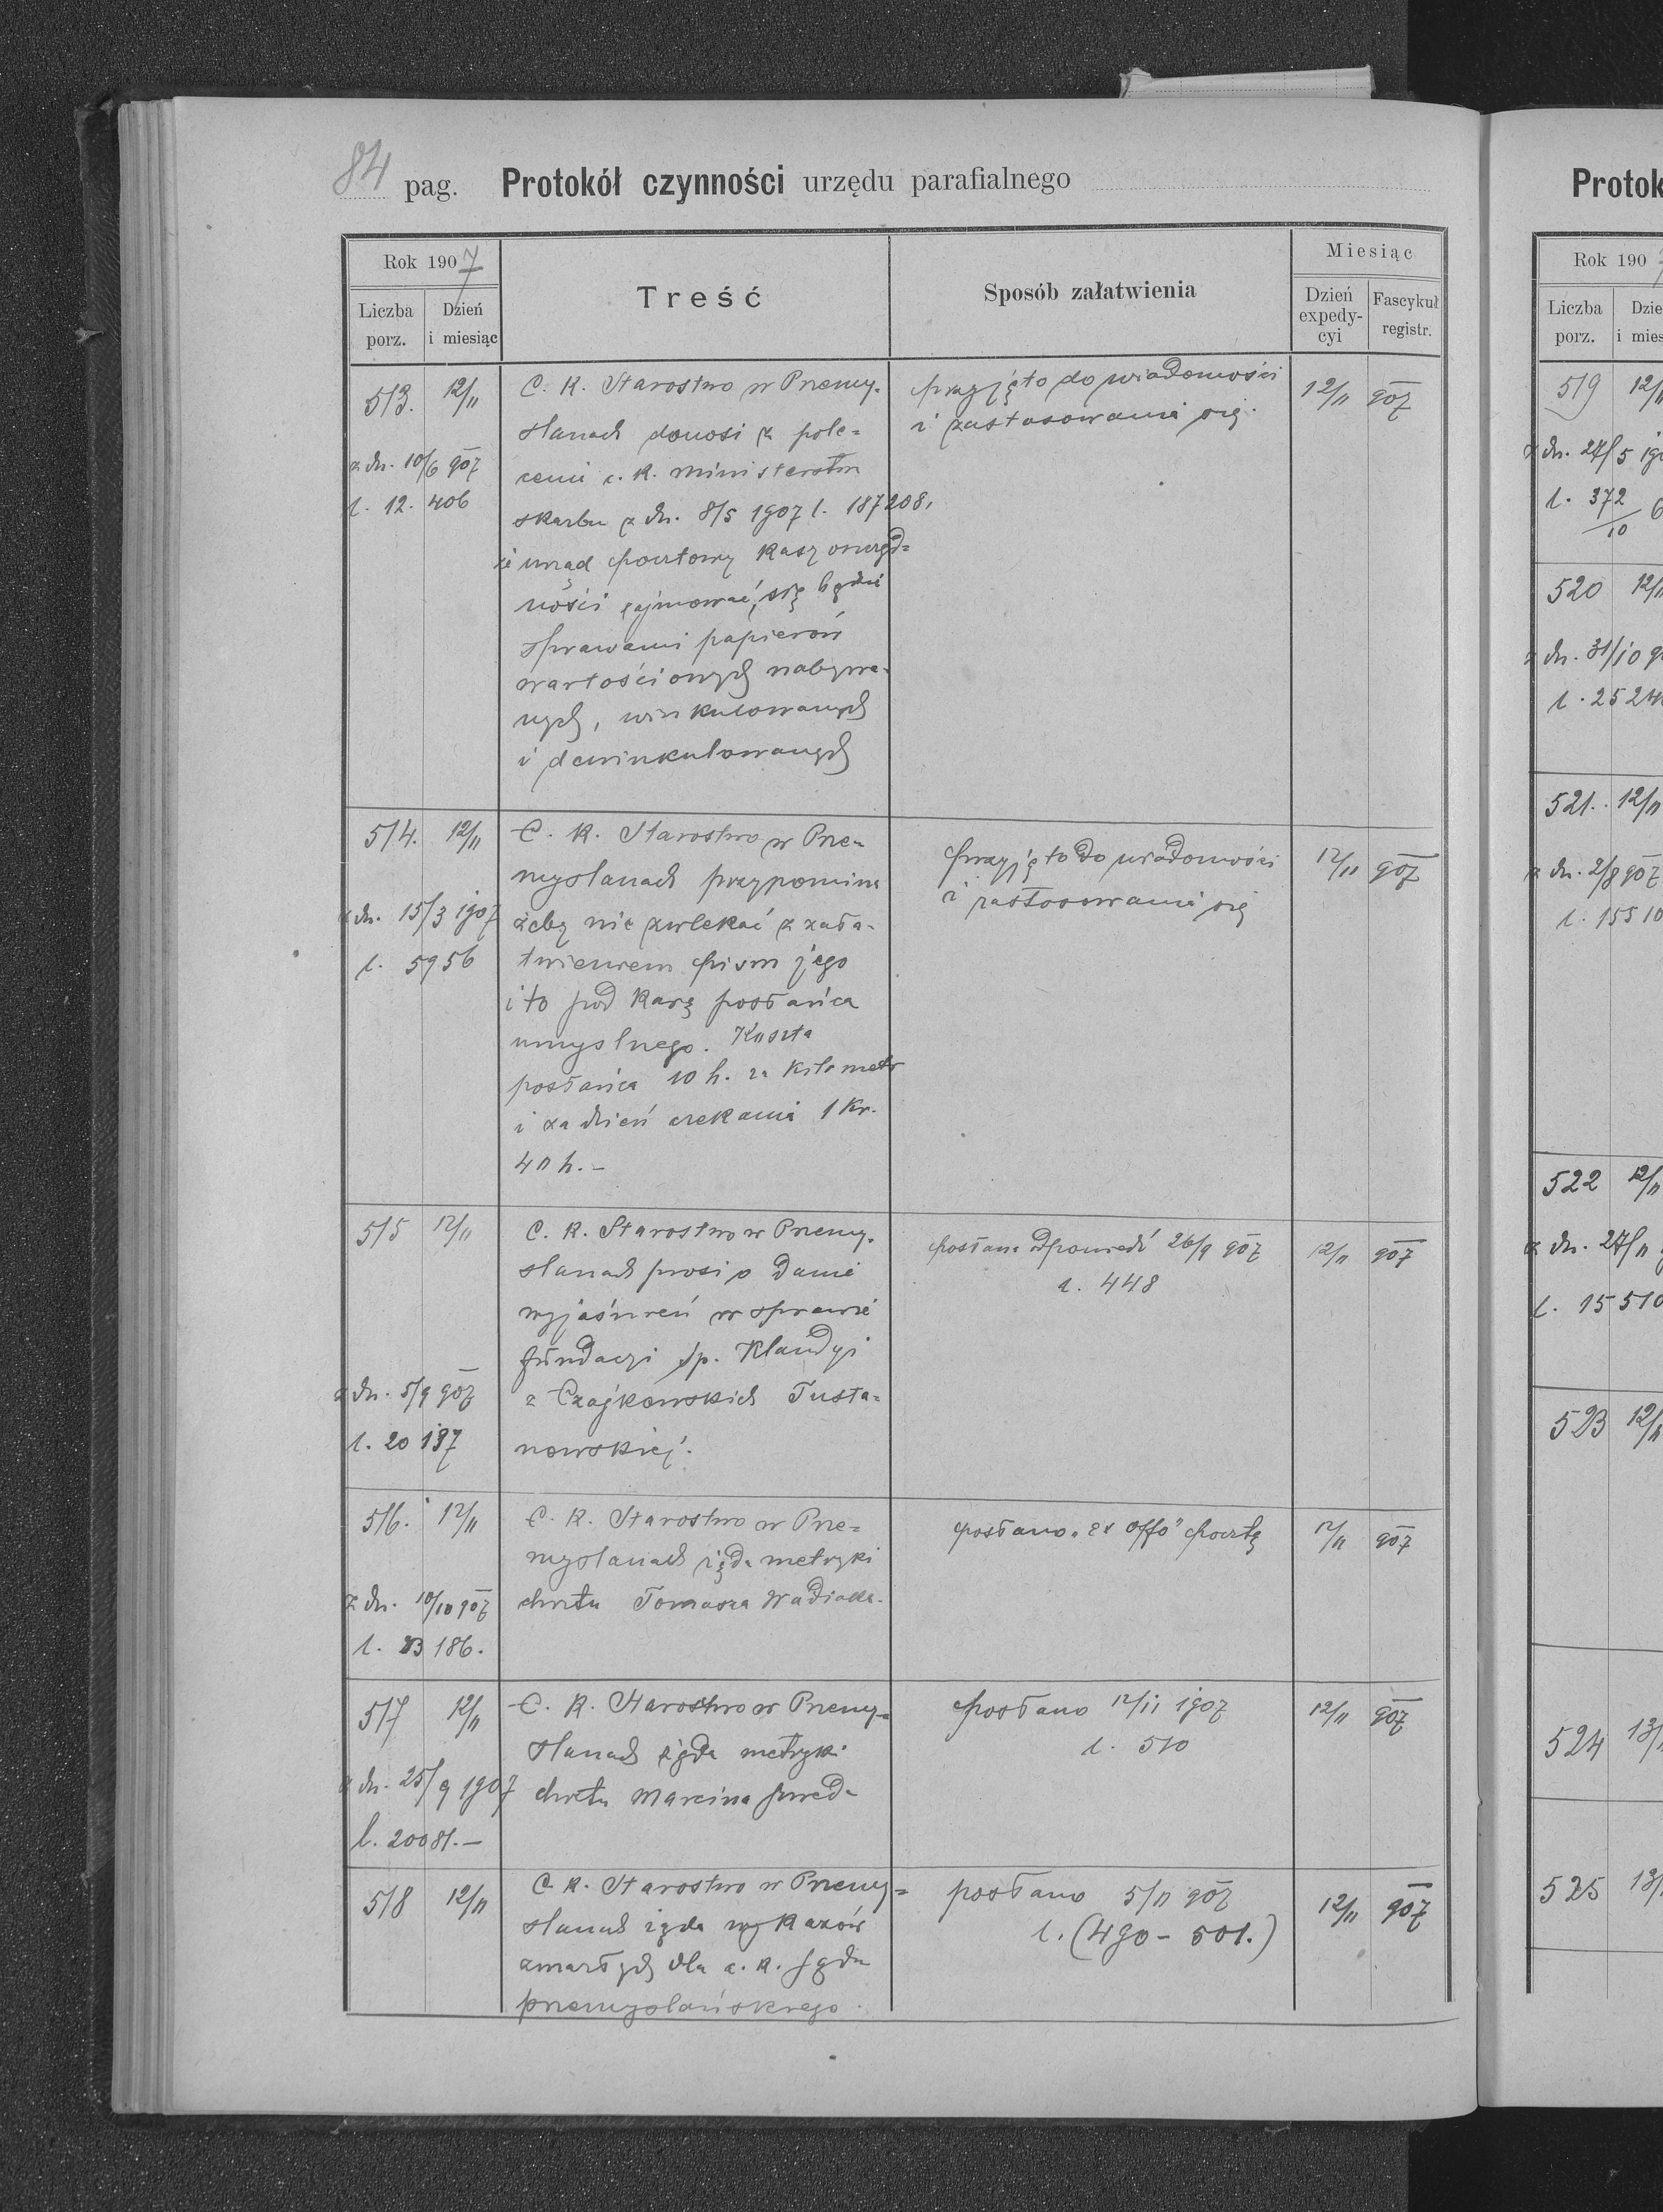 84 pag. Protokół czynności urzędu parafialnego
Rok 1907
Liczba porz.
Dzień i miesiąc
Treść
Sposób załatwienia
Miesiąc
Dzień expedycyi
Fascykuł registr.
513. 12/11
z dn. 10/6 907
l. 12.406
C. K. Starostwo w Przemy-
slanach donosi z pole=
cenia c. K. ministerstwa
skarbu z dn. 8/5 1907 l. 187208,
że urząd pocztowy Kasy oszczęd=
ności zajmować się będzie
sprawami papierów
wartościowych nabywa-
nych, winkulowanych
i dewinkulowanych
przyjęto do wiadomości
i zastosowania się.
12/11 907
514. 12/11
z dn. 15/3 1907
l. 5956
C. K. Starostwo w Prze-
myslanach przypomina
żeby nie zwlekać z zała-
twieniem pism jego
i to pod karą posłańca
umyslnego. Koszta
posłańca 10 h. za kilometr
i za dzień czekania 1 Kr.
40 h. –
przyjęto do wiadomości
i zastosowania się
12/11 907
515 12/11
z dn. 5/9 907
l. 20187
C. K. Starostwo w Przemy-
slanach prosi o danie
wyjaśnień w sprawie
fundacyi śp. Klaudyi
z Czajkowskich Tusta=
nowskiej.
posłano odpowiedź 26/9 907
l. 448
12/11 907
516. 12/11
z dn. 10/10 907
l. 23186.
C. K. Starostwo w Prze=
myslanach żąda metryki
chrztu Tomasza Wadiaka.
posłano „ex offo" pocztą
12/11 907
517 12/11
z dn. 25/9 1907
l. 20081. –
C. K. Starostwo w Przemy=
slanach żąda metryki
chrztu Marcina
posłano 12/11 1907
l. 510
12/11 907
518 12/11
C. K. Starostwo w Przemy=
slanach żąda wykazów
zmarłych dla c. K. sądu
przemyslańskiego.
posłano 5/11 907
l. (490 – 501.)
12/11 907
Protok
Rok 190
Liczba porz.
Dzie
i mies
519 12/11
z dn. 27/5
l. 372/10
520 12/11
z dn. 31/10
l. 2524
521. 12/11
z dn. 2/8 907
l. 15510
522 12/11
z dn. 27/11
l. 15510
523 12/11
524 13/
525 13/